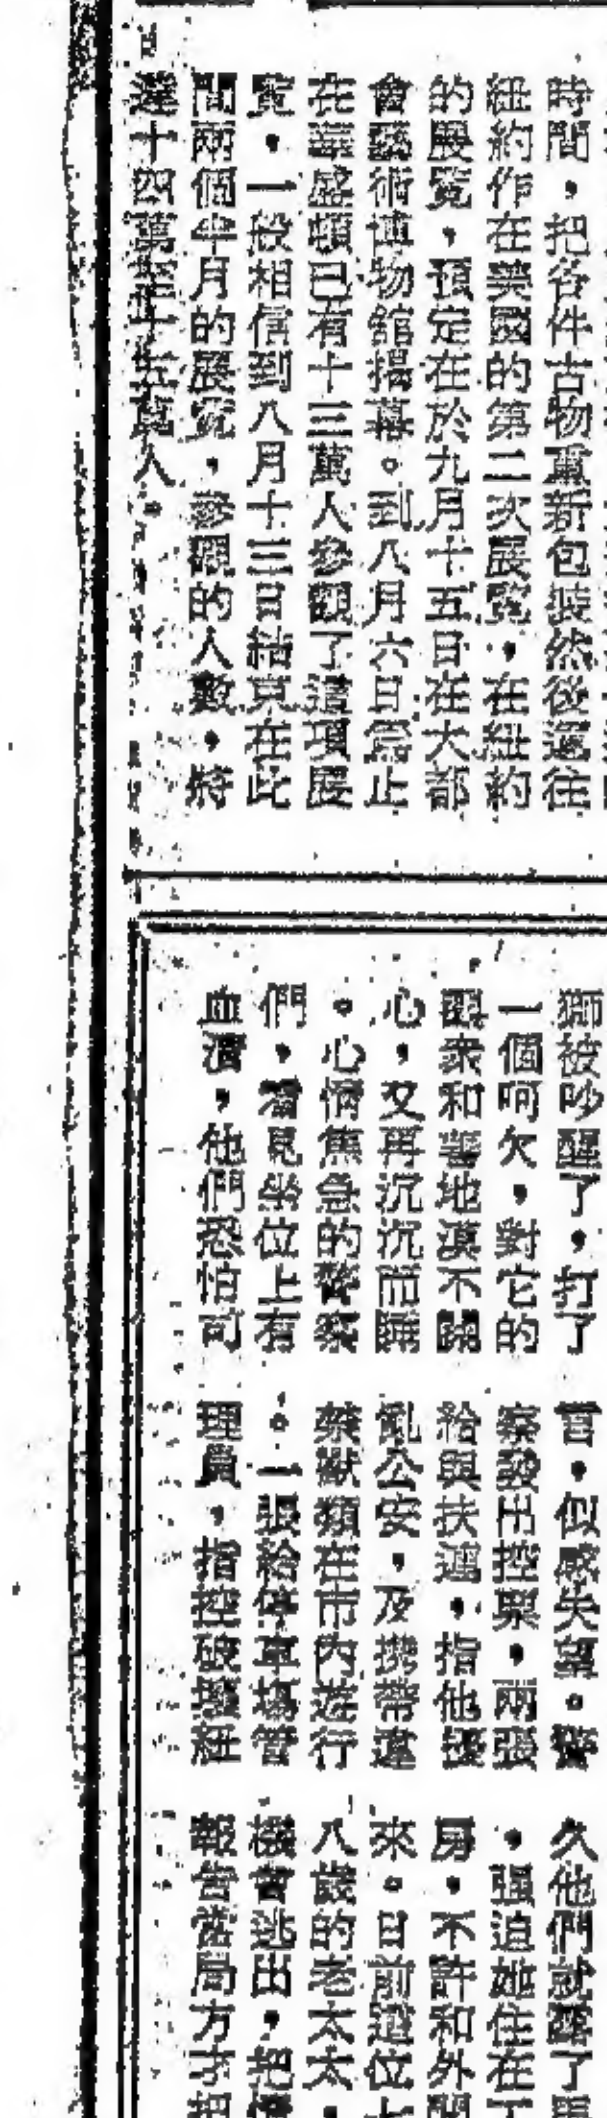 時間，把各件古物重新包裝然後運往
紐約作在美國的第二次展覽，在紐約
的展覽，預定在於九月十五日在大都
會藝術博物館揭幕。到八月六日爲止
在華盛頓已有十三萬人參觀了這項展
覽，一般相信到八月十三日結束在此
間兩個半月的展覽，參觀的人數，將
達十四萬至十五萬人。
獅被吵醒了，打了
一個呵欠，對它的
觀衆和善地漠不關
心，又再沉沉而睡
。心情焦急的警察
們，看見坐位上有
血漬，他們恐怕可
言，似感失望。警
察發出控票，兩張
給與扶運，指他擾
亂公安，及携帶違
禁獸類在市內遊行
。一張給停車場管
理員，指控破壞紐
久他們就露了
，强迫她住在
房，不許和外間
來。日前這位七
八歲的老太太，
機會逃出，把情
報告當局方才把